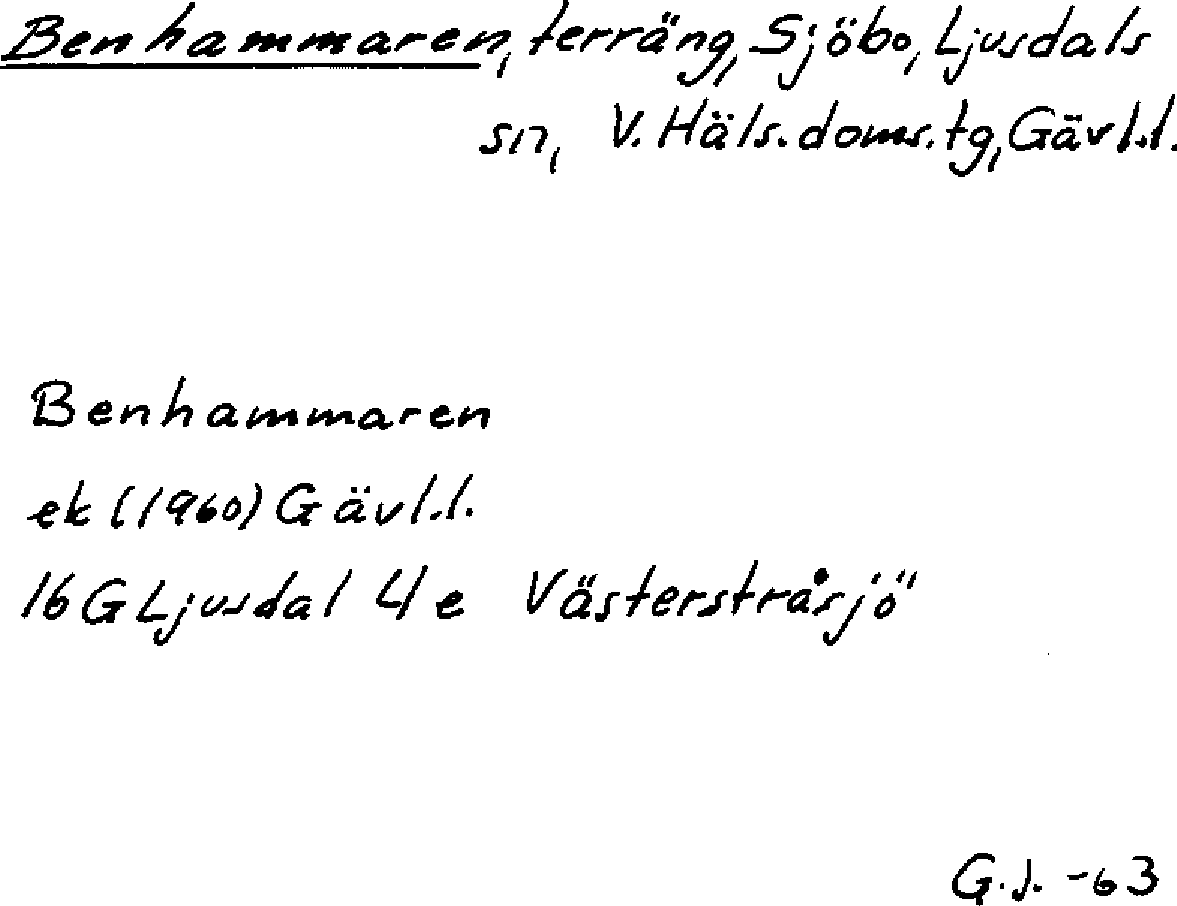 Benhammaren, terräng, Sjöbo, Ljusdals
sn, V. Häls. doms. tg, Gävl.l.
Benhammaren
ek (1960) Gävl.l.
16 G Ljusdal 4 e Västerstråsjö
G.J. -63